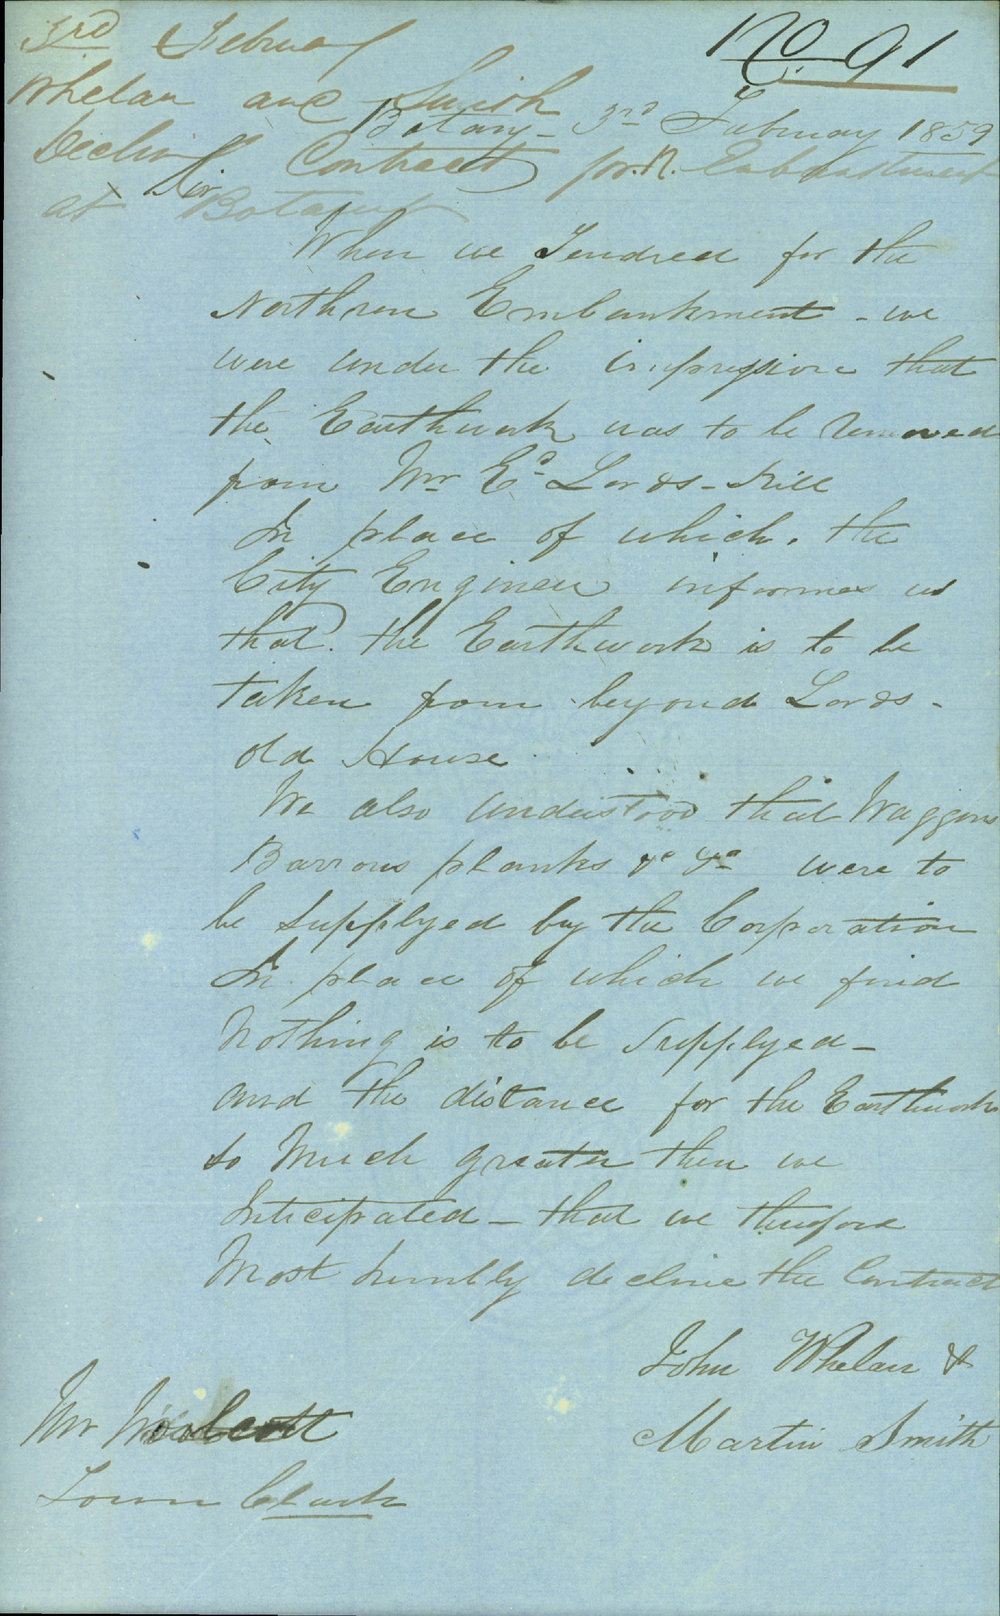 No. 91
3rd February
Whelan and Smith
Decling Contract for N. Embankment
at Botany
Botany - 3rd February 1859
Sir
When we Tendred for the
Northren Embankment - we
were under the impression that
the Earthwork was to be Removed
from Mr Ed Lords - Hill
In place of which, the
City Engineer informes us
that the Earthwork is to be
taken from beyond Lords -
old House
We also understood that Waggons
Barrows planks &c &c were to
be Supplyed by the Corporation
In place of which we find
Nothing is to be Supplyed -
and the distance for the Earthwork
so Much greater then we
Inticipated - that we therefore
Most humbly decline the Contract
John Whelan &
Martin Smith
Mr Woolcott
Town Clark